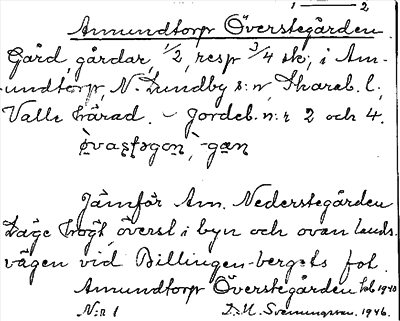 1 — 2
Amundtorp Överstegården.
Gård, gårdar, 1/2, resp 3/4 sk, i Am-
undtorp, N. Lundby s:n, Skarab. l.,
Valle härad. - Jordeb. n:r 2 och 4.
-gan
Jämför Am. Nederstegården
Läge högt, överst i byn och ovan lands-
vägen vid Billingen-bergets fot.
Amundtorp Överstegården
N:r 1 Svenungsson. 1946.